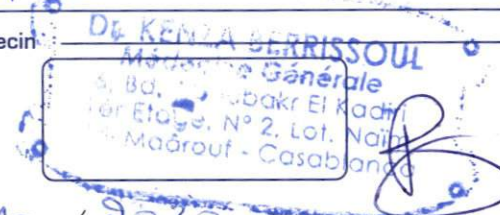 ecin
Dr KENZA BERRISSOUL
Médecine Générale
Bd. bakr El Kadiri
1er Etage, N° 2, Lot. Naïm
Maârouf - Casablanca